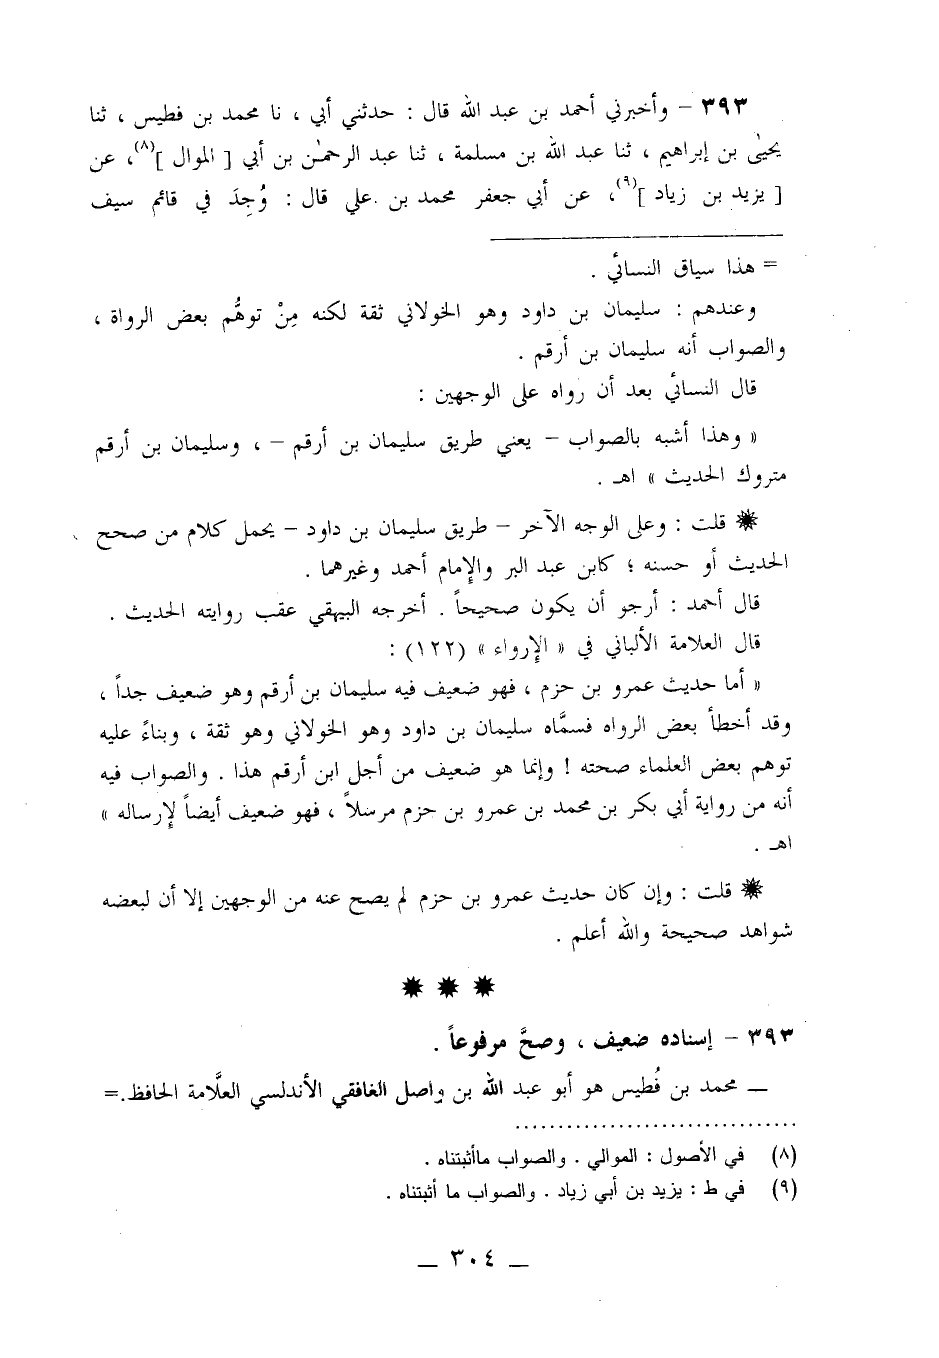 ٣٩٣ – وأخبرني أحمد بن عبد الله قال : حدثني أبي ، نا محمد بن فطيس ، ثنا
يحيىٰ بن إبراهيم ، ثنا عبد الله بن مسلمة ، ثنا عبد الرحمٰن بن أبي [ الموال ](٨)، عن
[ يزيد بن زياد ](٩)، عن أبي جعفر محمد بن علي قال : وُجِدَ في قائم سيف
= هذا سياق النسائي .
وعندهم : سليمان بن داود وهو الخولاني ثقة لكنه مِنْ توهُّم بعض الرواة ،
والصواب أنه سليمان بن أرقم .
قال النسائي بعد أن رواه على الوجهين :
« وهذا أشبه بالصواب – يعني طريق سليمان بن أرقم – ، وسليمان بن أرقم
متروك الحديث » اهـ .
✸ قلت : وعلى الوجه الآخر – طريق سليمان بن داود – يحمل كلام من صحح
الحديث أو حسنه ؛ كابن عبد البر والإمام أحمد وغيرهما .
قال أحمد : أرجو أن يكون صحيحاً . أخرجه البيهقي عقب روايته الحديث .
قال العلامة الألباني في « الإرواء » (١٢٢) :
« أما حديث عمرو بن حزم ، فهو ضعيف فيه سليمان بن أرقم وهو ضعيف جداً ،
وقد أخطأ بعض الرواه فسمَّاه سليمان بن داود وهو الخولاني وهو ثقة ، وبناءً عليه
توهم بعض العلماء صحته ! وإنما هو ضعيف من أجل ابن أرقم هذا . والصواب فيه
أنه من رواية أبي بكر بن محمد بن عمرو بن حزم مرسلاً ، فهو ضعيف أيضاً لإرساله »
اهـ .
✸ قلت : وإن كان حديث عمرو بن حزم لم يصح عنه من الوجهين إلا أن لبعضه
شواهد صحيحة والله أعلم .
✸ ✸ ✸
٣٩٣ – إسناده ضعيف ، وصحَّ مرفوعاً .
ـــ محمد بن فُطيس هو أبو عبد الله بن واصل الغافقي الأندلسي العلَّامة الحافظ.=
(٨) في الأصول : الموالي . والصواب ماأثبتناه .
(٩) في ط : يزيد بن أبي زياد . والصواب ما أثبتناه .
ـــ ٣٠٤ ـــ